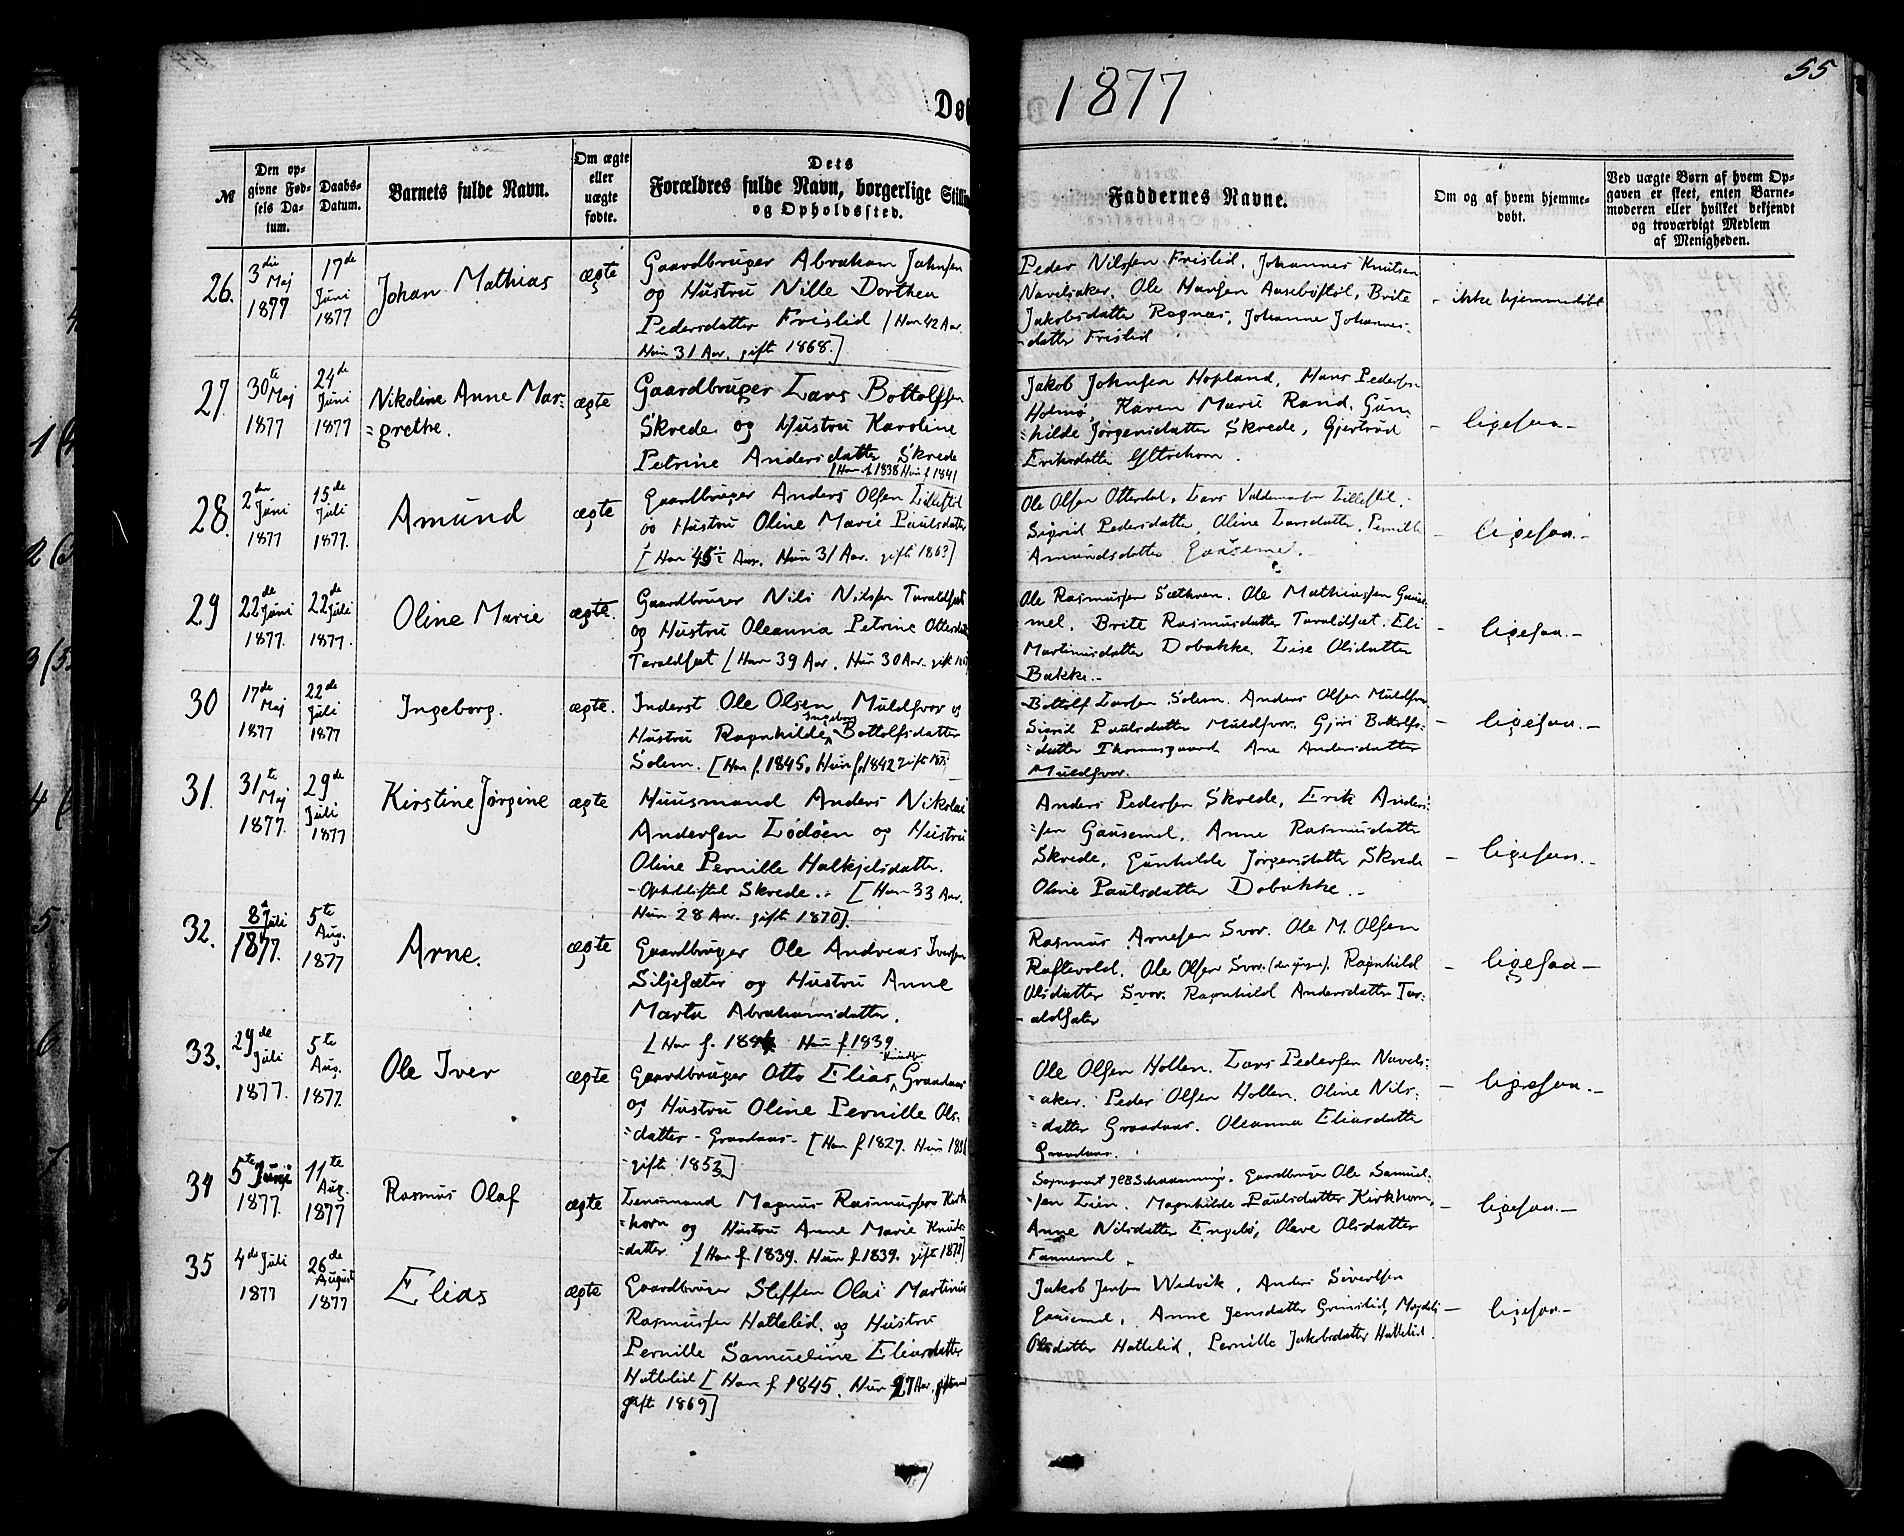 55
Dø
1877
№
Den op-
givne Fød-
sels Da-
tum.
Daabs-
Datum.
Barnets fulde Navn.
Om ægte
eller
uægte
fødte.
Dets
Forældres fulde Navn, borgerlige Stillin
og Opholdssted.
Faddernes Navne.
Om og af hvem hjemme-
døbt.
Ved uægte Børn af hvem Op-
gaven er skeet, enten Barne-
moderen eller hvilket bekjendt
og troværdigt Medlem
af Menigheden.
26.
3die
Maj
1877
17de
Juni
1877
Johan Mathias
ægte
Gaardbruger Abraham Jahnsen
og Hustru Nille Dorthea
Pedersdatter Frislid [Han 42 Aar.
Hun 31 Aar. gifte 1868.]
Peder Nilssen Frislid, Johannes Knutsen
Navelsaker. Ole Hansen Aasebøstøl, Brite
Jakobsdatter Rognæs, Johanne Johannes-
datter Frislid
- ikke hjemmedøbt
27.
30te
Maj
1877
24de
Juni
1877
Nikoline Anne Mar=
=grethe.
ægte
Gaardbruger Lars Bottolfsen
Skrede og Hustru Karoline
Petrine Andersdatter Skrede
[Han f. 1838 Hun f. 1841
Jakob Johnsen Hopland, Hans Pedersen
Holmø, Karen Marie Rand. Gun=
=hilde Jørgensdatter Skrede, Gjertrud
Eriksdatter Ystrehorn.
- ligesaa -
28.
2den
Juni
1877
15de
Juli
1877.
Amund
ægte
Gaardbruger Anders Olsen Lillestøl
og Hustru Oline Marie Paulsdatter
[Han 45½ Aar. Hun 31 Aar. gifte 1863]
Ole Olsen Otterdal, Lars Valdemarsen Lillestøl.
Sigrid Pedersdatter, Oline Larsdatter, Pernille
Amundsdatter Gausemel.
- ligesaa -
29
22de
Juni
1877.
22de
Juli
1877.
Oline Marie
ægte.
Gaardbruger Nils Nilssen Taraldset
og Hustru Oleanna Petrine Ottersdatter
Taraldset [Han 39 Aar. Hun 30 Aar. gift
Ole Rasmussen Sætheren. Ole Mathiassen Gause
mel. Brite Rasmusdatter Taraldset. Eli
Martinusdatter Dobakke. Lise Olsdatter
Bakke. -
- ligesaa -
30
17de
Maj
1877
22de
Juli
1877
Ingeborg.
ægte.
Inderst Ole Olsen Muldsvor og
Hustru Ragnhilde Ingeborg Bottolfsdatter
Solem. [Han f. 1845, Hun f. 1842 gift
Bottolf Larsen Solem. Anders Olsen Muldsvor
Sigrid Paulsdatter Muldsvor. Gjøri Bottolfs=
=datter Thomasgaard Ane Andersdatter
Muldsvor.
- ligesaa -
31.
31te
Maj
1877.
29de
Juli
1877
Kirstine Jørgine
ægte
Huusmand Anders Nikolai
Andersen Lødøen og Hustru
Oline Pernille Halkjelsdatter.
- Opholdssted Skrede. [Han 33 Aar.
Hun 28 Aar. gifte 1870].
Anders Pedersen Skrede, Erik Anders=
=sen Gausemel, Anne Rasmusdatter
Skrede, Gunhilde Jørgensdatter Skrede
Oline Paulsdatter Dobakke. -
- ligesaa -
32.
8de Juli
1877.
5te
Aug.
1877
Arne.
ægte
Gaardbruger Ole Andreas Iversen
Siljesæter og Hustru Anne
Marta Abrahamsdatter.
[Han f. Hun f. 1839.
Rasmus Arnesen Svor. Ole M. Olsen
Raftevold. Ole Olsen Svor. (den yngre). Ragnhild
Olsdatter Svor. Ragnhild Andersdatter Tar=
- aldsæter
- ligesaa -
33.
29de
Juli
1877.
5te
Aug.
1877.
Ole Iver
ægte
Gaardbruger Otto Elias Knudsen Graadaas
og Hustru Oline Pernille Ols=
=datter - Graadaas - [Han f. 1827. Hun
- gifte 1853]
Ole Olsen Hollen. Lars Pedersen Navels=
=aker. Peder Olsen Hollen. Oline Nils=
=datter Graadaas. Oleanna Eliasdatter
Graadaas.
- ligesaa -
34
5te Juni
1877.
11te
Aug.
1877
Rasmus Olaf
ægte
Lensmand Magnus Rasmussen Kirk
=horn og Hustru Anne Marie Knuds=
=datter [Han f. 1839. Hun f. 1839. gift
Sogneprest Schaanning. Gaardbruger Ole Samuel=
=sen Lien. Magnhilde Paulsdatter Kirkhorn,
Anne Nilsdatter Engelø, Olave Olsdatter
Tannemel.
- ligesaa -
35
4de Juli
1877
26de
August
1877
Elias
ægte
Gaardbruger Steffen Olai Martinus
Rasmussen Hattelid. og Hustru
Pernille Samueline Eliasdatter
Hattelid [Han f. 1845. Hun 27 Aar.
gift 1869]
Jakob Jensen Wedvik, Anders Sivertsen
Gausemel, Anne Jensdatter Grimstad, Magdeli
Olsdatter Hattelid, Pernille Jakobsdatter Hattelid.
- ligesaa -